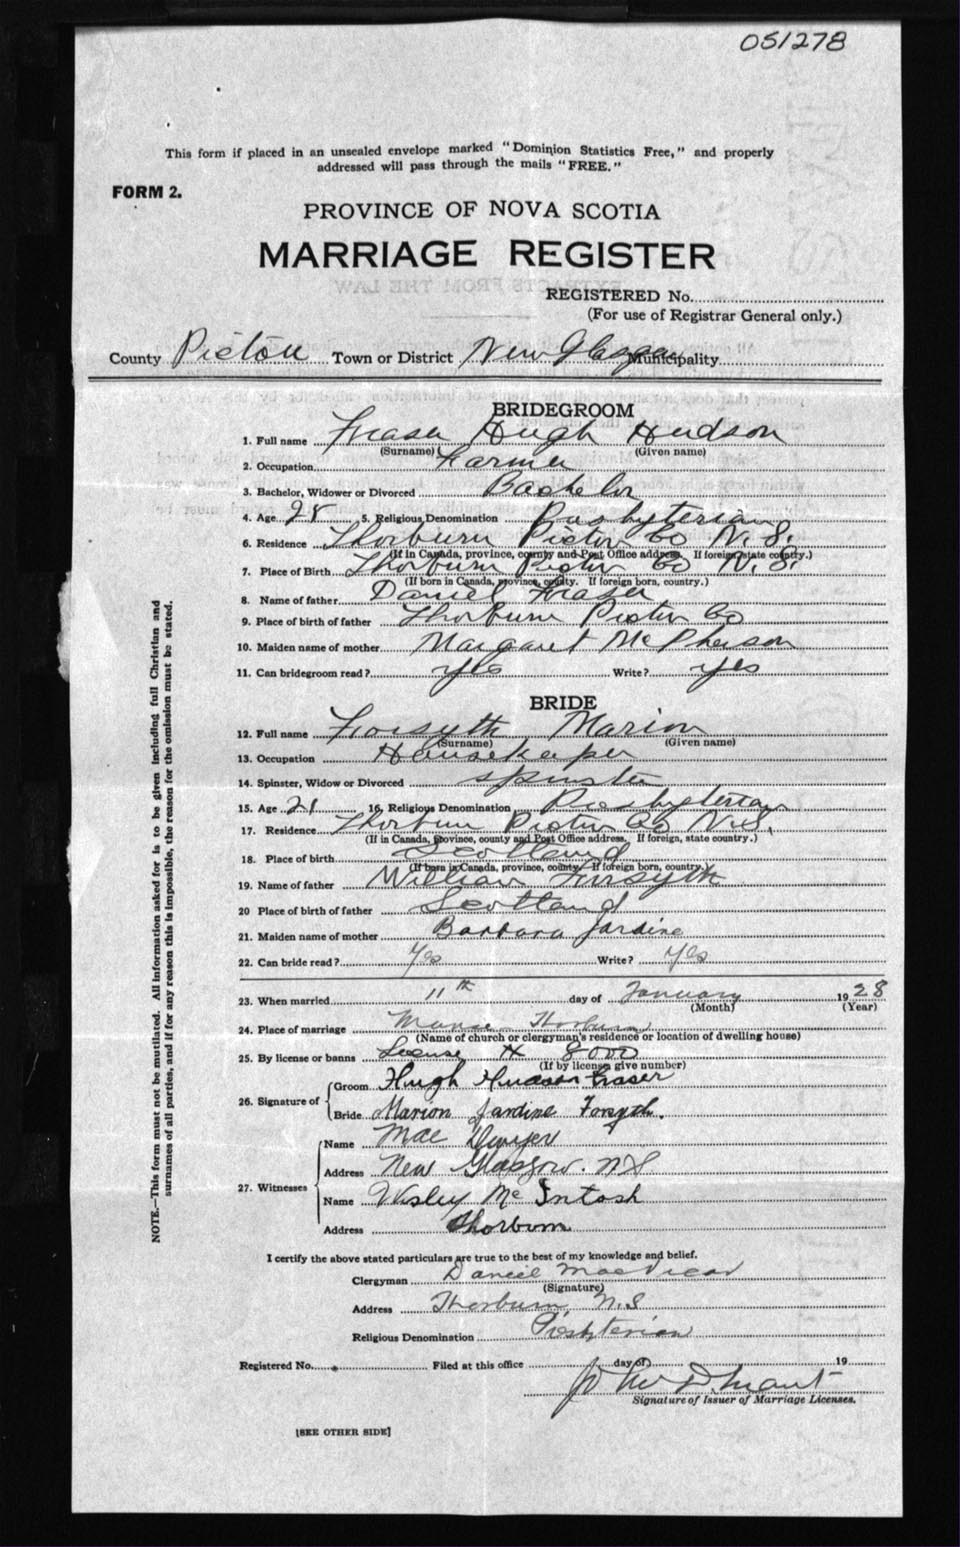 051278
This form if placed in an unsealed envelope marked "Dominion Statistics Free," and properly
addressed will pass through the mails "FREE."
FORM 2.
PROVINCE OF NOVA SCOTIA
MARRIAGE REGISTER
EXTRACTS FROM THE LAW
REGISTERED No.
(For use of Registrar General only.)
County Pictou Town or District New Glasgow Municipality
BRIDEGROOM
1. Full name Fraser Hugh Hudson
(Surname) (Given name)
2. Occupation Farmer
3. Bachelor, Widower or Divorced Bachelor
4. Age 28 5. Religious Denomination Presbyterian
6. Residence Thorburn Pictou Co N.S.
(If in Canada, province, county and Post Office address. If foreign, state country.)
7. Place of Birth Thorburn Pictou Co N.S.
(If born in Canada, province, county. If foreign born, country.)
8. Name of father Daniel Fraser
9. Place of birth of father Thorburn Pictou Co
10. Maiden name of mother Margaret McPherson
11. Can bridegroom read? yes Write? yes
BRIDE
12. Full name Forsyth Marion
(Surname) (Given name)
13. Occupation Housekeeper
14. Spinster, Widow or Divorced spinster
15. Age 21 16. Religious Denomination Presbyterian
17. Residence Thorburn Pictou Co N.S.
(If in Canada, province, county and Post Office address. If foreign, state country.)
18. Place of birth Scotland
(If born in Canada, province, county. If foreign born, country.)
19. Name of father William Forsyth
20 Place of birth of father Scotland
21. Maiden name of mother Barbara Jardine
22. Can bride read? Yes Write? Yes
23. When married 11th day of January 1928
(Month) (Year)
24. Place of marriage Manse Thorburn
(Name of church or clergyman's residence or location of dwelling house)
25. By license or banns License # 8000
(If by license give number)
26. Signature of
Groom Hugh Hudson Fraser
Bride Marion Jardine Forsyth.
27. Witnesses
Name Mae Dwyer
Address New Glasgow. N S
Name Wesley McIntosh
Address Thorburn
I certify the above stated particulars are true to the best of my knowledge and belief.
Clergyman Daniel MacVicar
(Signature)
Address Thorburn, N.S
Religious Denomination Presbyterian
Registered No. Filed at this office day of 19
John D. Grant
Signature of Issuer of Marriage Licenses.
[SEE OTHER SIDE]
NOTE.—This form must not be mutilated. All information asked for is to be given including full Christian and
surnames of all parties, and if for any reason this is impossible, the reason for the omission must be stated.